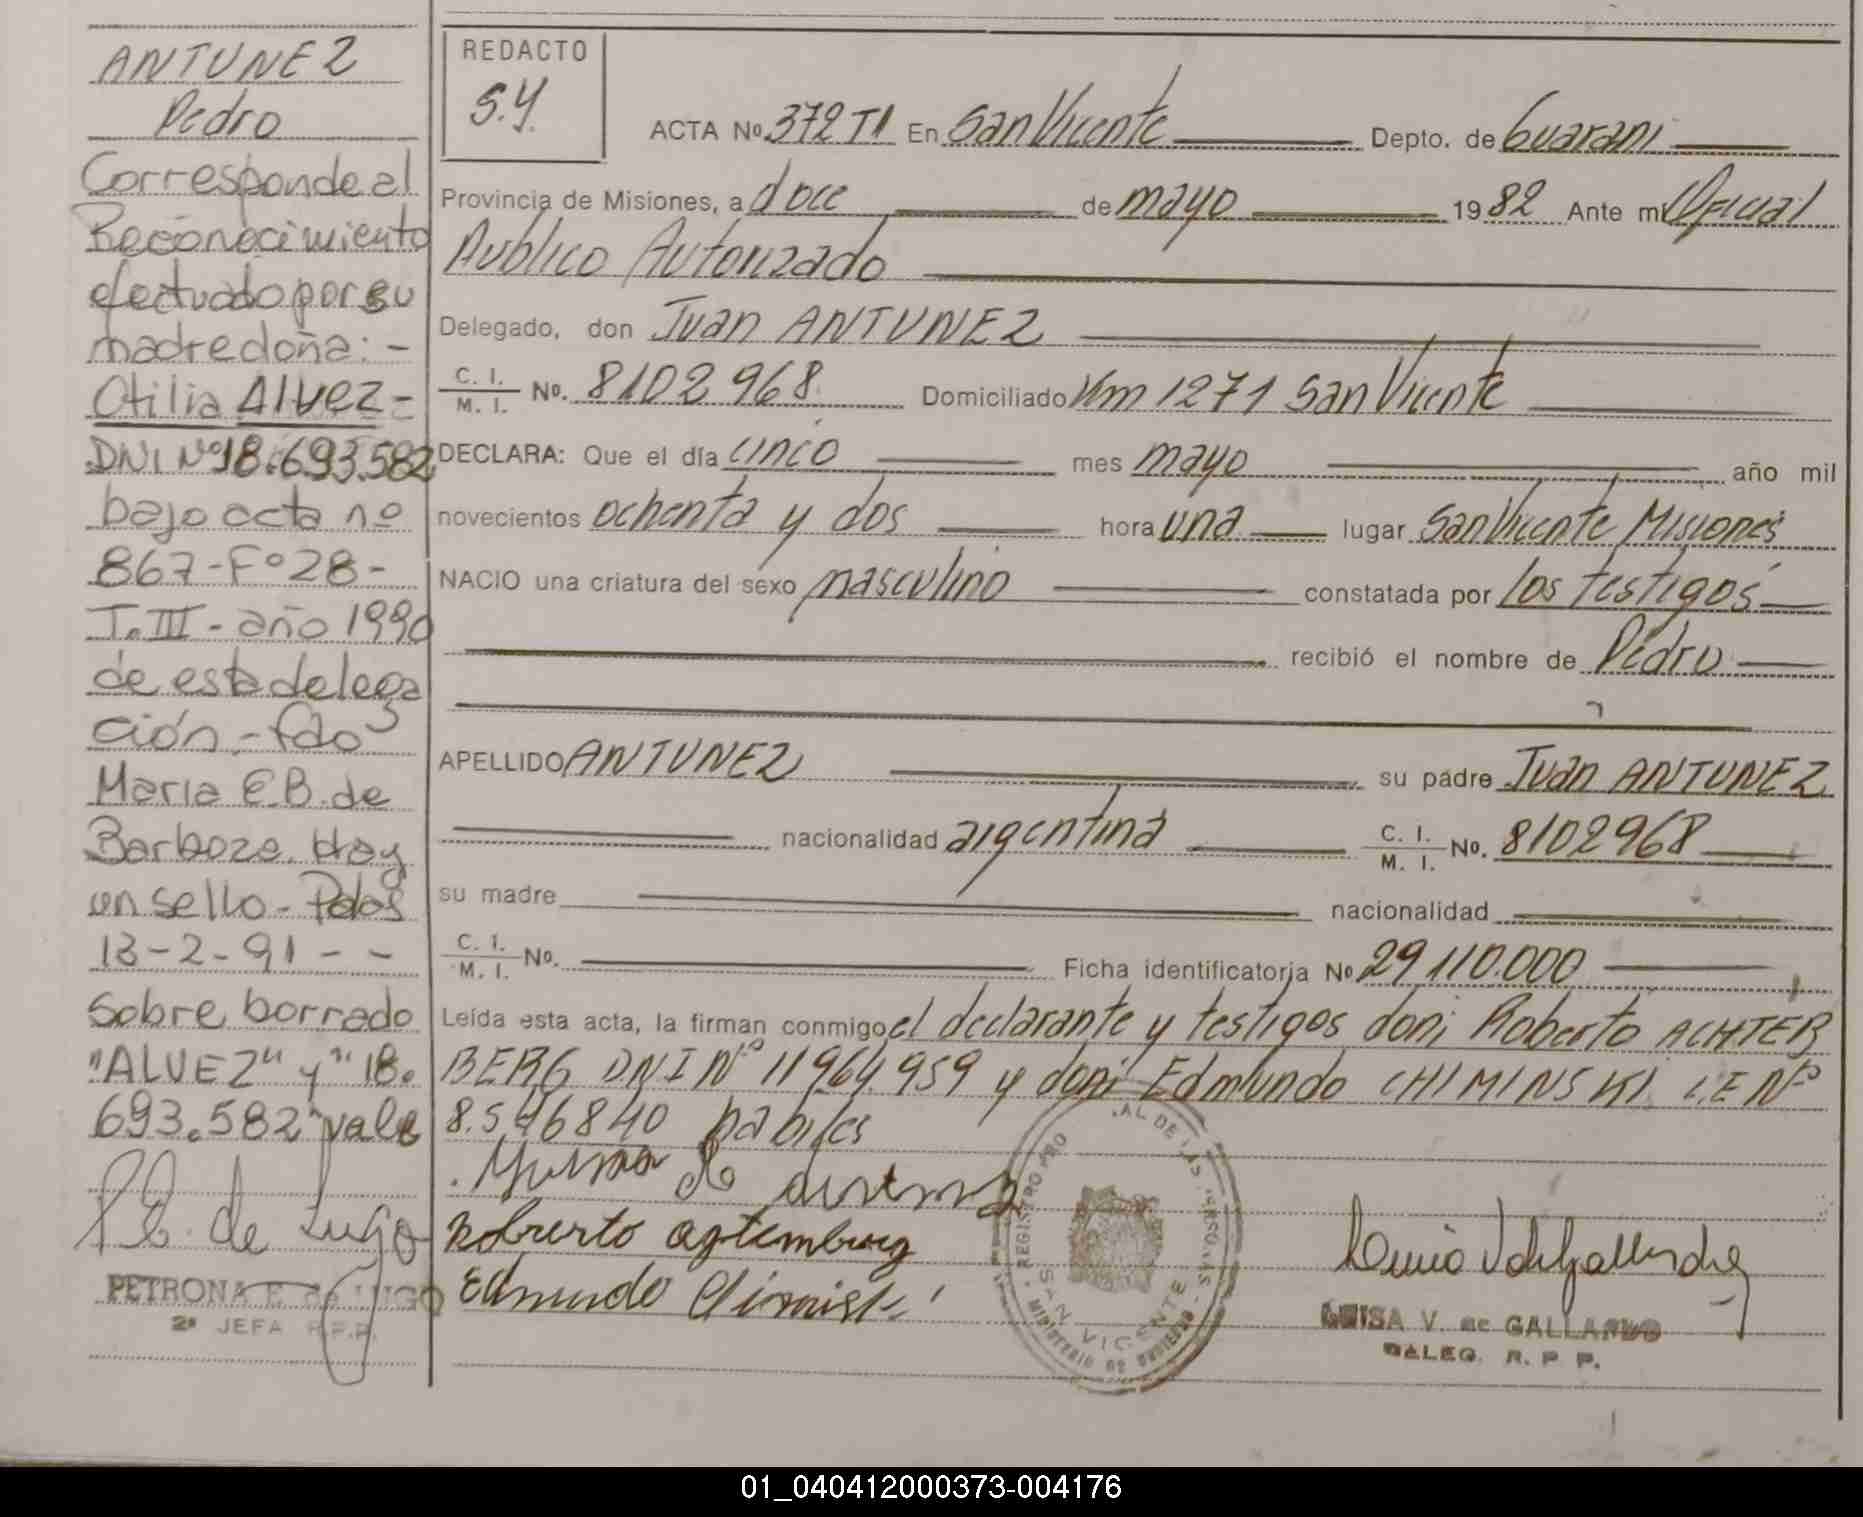 ANTUNEZ
Pedro
Corresponde al
Reconocimiento
efectuado por su
madre doña: -
Otilia Alvez -
DNI Nº 18.693.582
bajo acta nº
867 - Fº 28 -
T. III - año 1990
de esta delega
ción. - fdo
Maria E.B. de
Barboza. Hay
un sello - Pdas
13 - 2 - 91 - -
Sobre borrado
"ALVEZ" y "18.
693.582" vale
P.E. de Lugo
PETRONA E. de LUGO
2ª JEFA R.P.P.
REDACTO
S.Y.
ACTA Nº 372 T1 En San Vicente Depto. de Guarani
Provincia de Misiones, a doce de mayo 1982 Ante mi Oficial
Publico Autorizado
Delegado, don Juan ANTUNEZ
C. I. / M. I. Nº. 8102968 Domiciliado Km 1271 San Vicente
DECLARA: Que el día cinco mes mayo año mil
novecientos ochenta y dos hora una lugar San Vicente Misiones
NACIO una criatura del sexo masculino constatada por los testigos
recibió el nombre de Pedro
APELLIDO ANTUNEZ su padre Juan ANTUNEZ
nacionalidad argentina C. I. / M. I. Nº. 8102968
su madre nacionalidad
C. I. / M. I. Nº. Ficha identificatoria Nº 29110.000
Leída esta acta, la firman conmigo el declarante y testigos don; Roberto ACHTER
BERG DNI Nº 11964.959 y don; Edmundo CHIMINSKI L.E Nº
8.546840 habiles
Roberto
Edmundo
REGISTRO PRO AL DE LAS PERSONAS
SAN VICENTE
MINISTERIO DE GOBIERNO
LUISA V. de GALLARDO
DALEG. R. P. P.
01_040412000373-004176